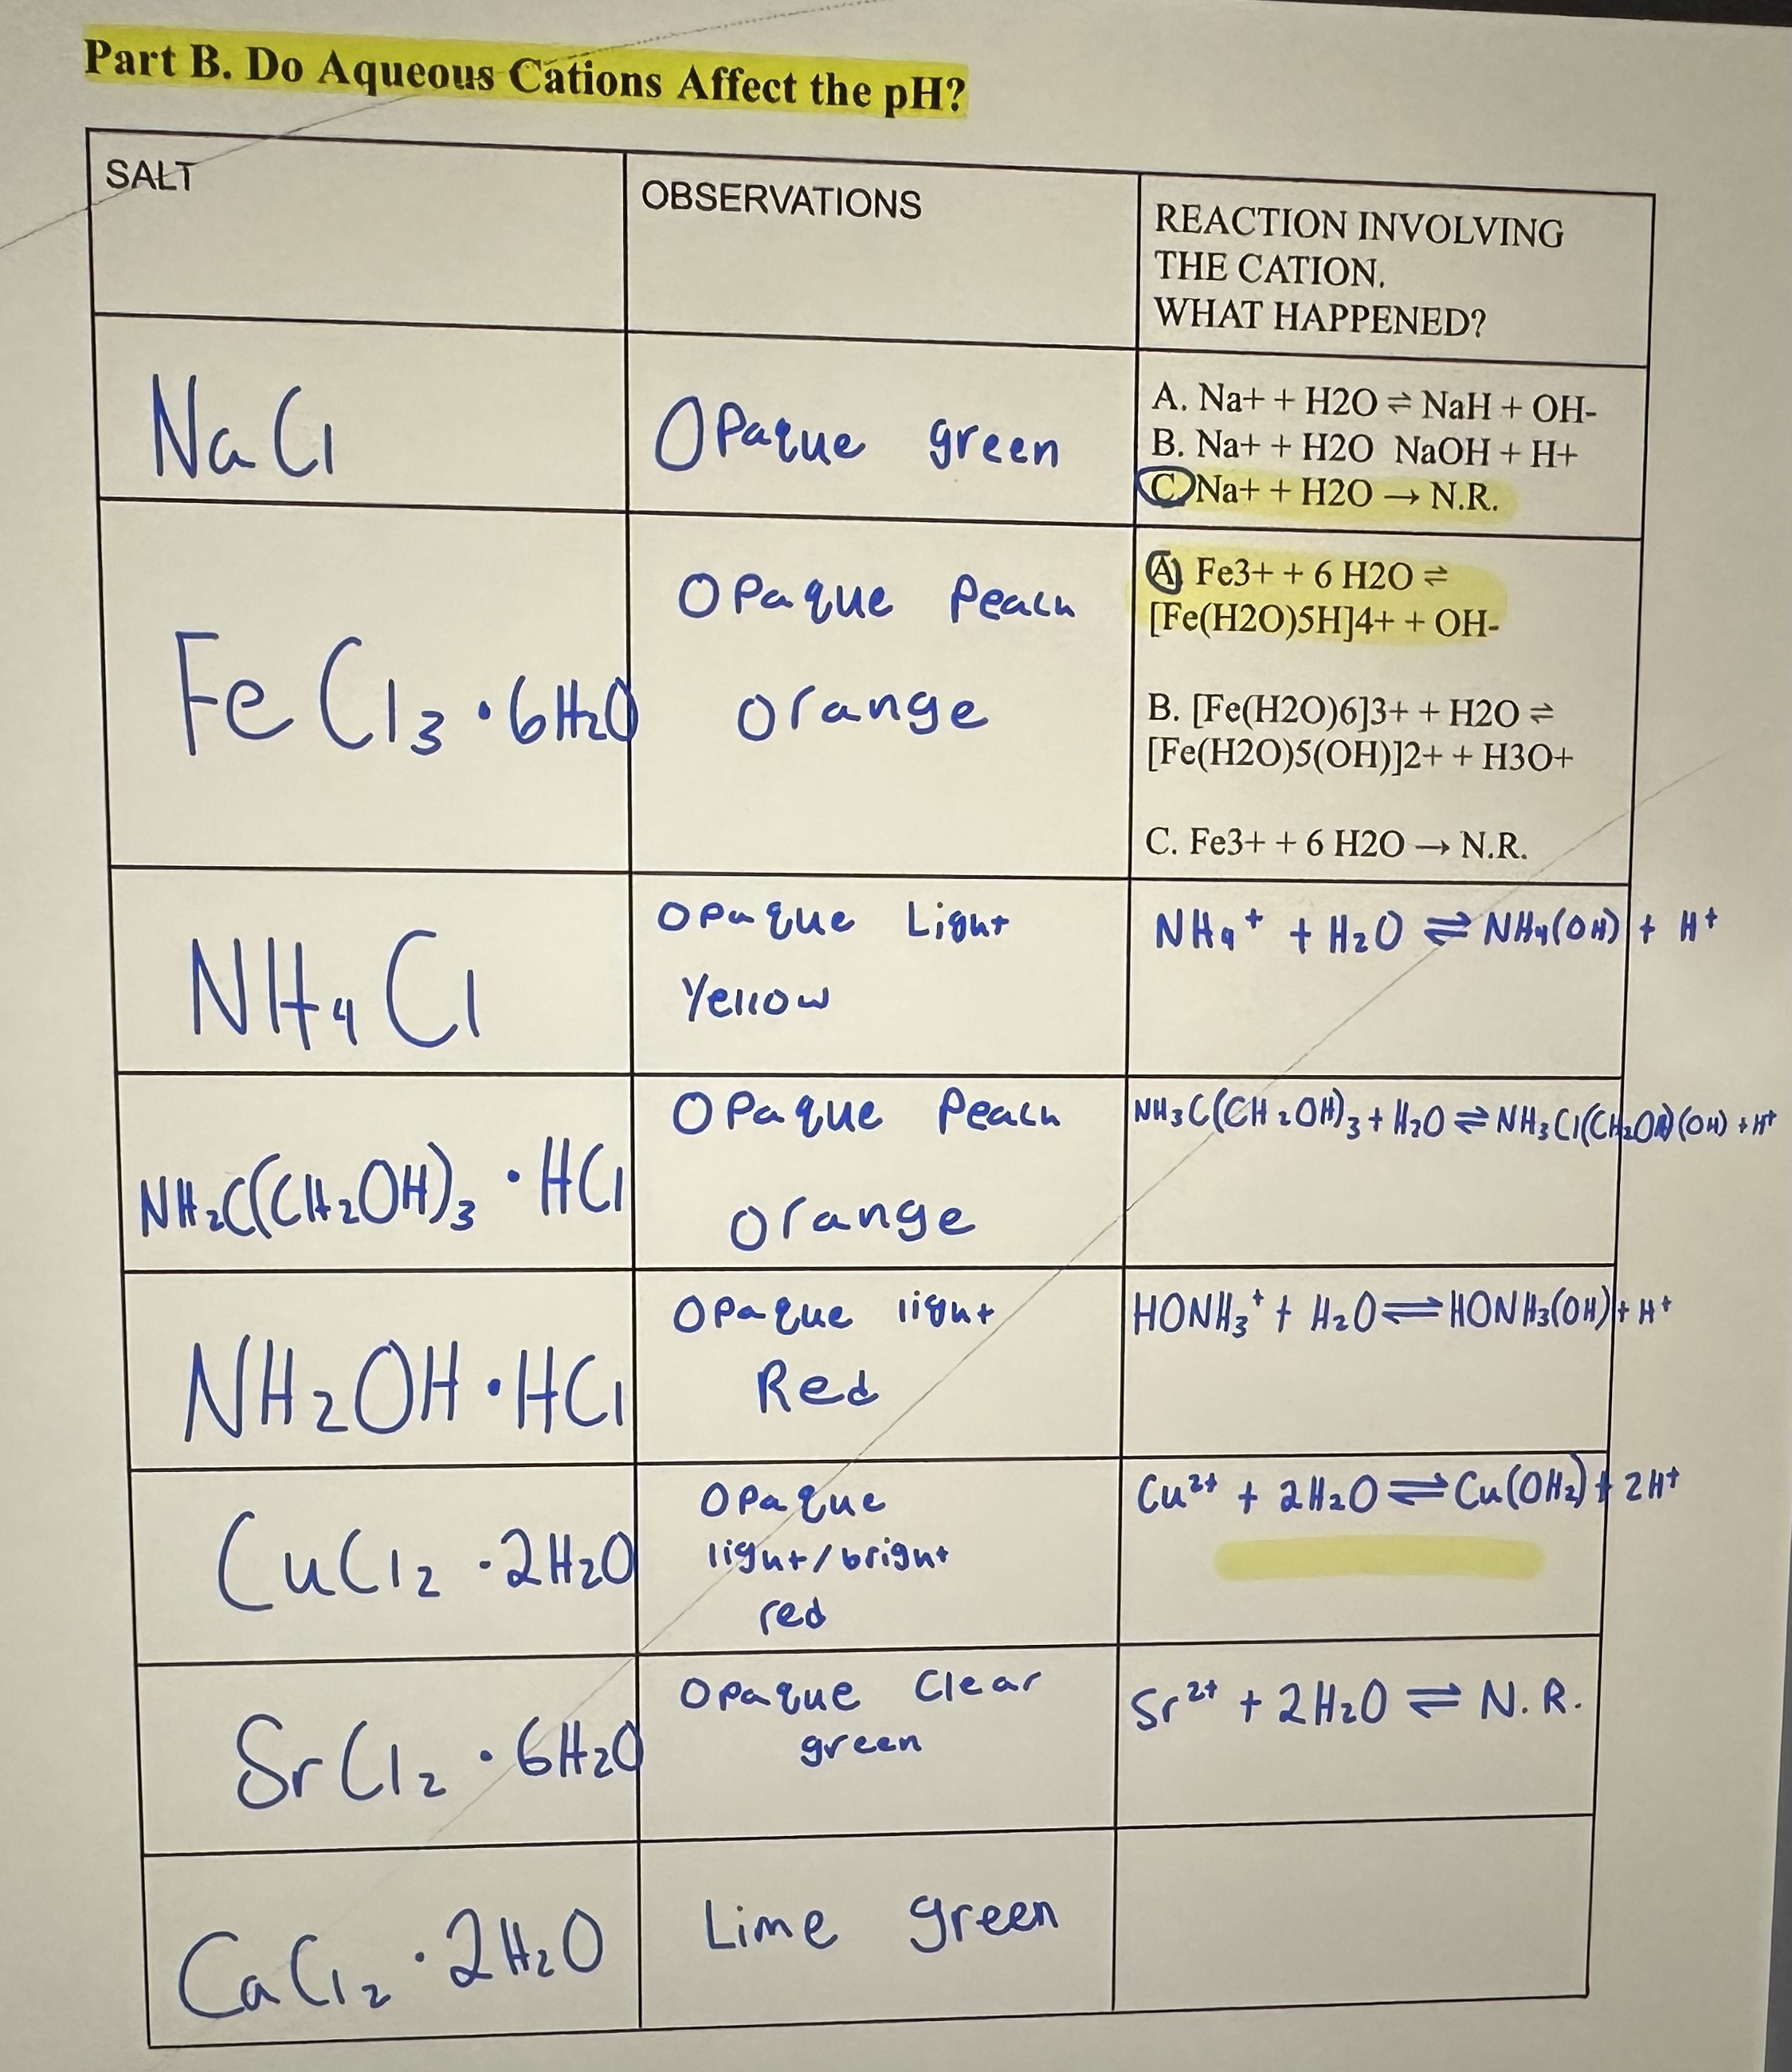 Part B. Do Aqueous Cations Affect the pH?
SALT
OBSERVATIONS
REACTION INVOLVING
THE CATION.
WHAT HAPPENED?
NaCl
Opaque green
A. Na+ + H2O ⇌ NaH + OH-
B. Na+ + H2O NaOH + H+
C. Na+ + H2O → N.R.
FeCl₃ · 6H₂O
Opaque Peach
orange
A. Fe3+ + 6 H2O ⇌
[Fe(H2O)5H]4+ + OH-
B. [Fe(H2O)6]3+ + H2O ⇌
[Fe(H2O)5(OH)]2+ + H3O+
C. Fe3+ + 6 H2O → N.R.
NH₄Cl
Opaque Light
Yellow
NH₄⁺ + H₂O ⇌ NH₄(OH) + H⁺
NH₂C(CH₂OH)₃ · HCl
Opaque Peach
orange
NH₃C(CH₂OH)₃ + H₂O ⇌ NH₃Cl(CH₂OH)(OH) + H⁺
NH₂OH · HCl
Opaque light
Red
HONH₃⁺ + H₂O ⇌ HONH₃(OH) + H⁺
CuCl₂ · 2H₂O
Opaque
light/bright
red
Cu²⁺ + 2H₂O ⇌ Cu(OH₂) + 2H⁺
SrCl₂ · 6H₂O
Opaque Clear
green
Sr²⁺ + 2H₂O ⇌ N.R.
CaCl₂ · 2H₂O
Lime green